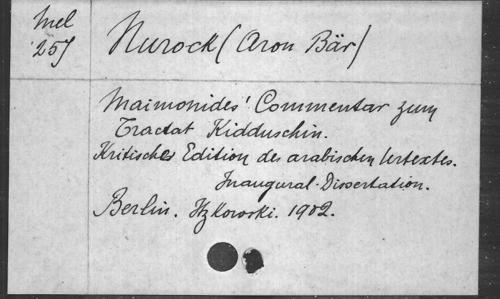 Mel
257
Nurock (Aron Bär)
Maimonides' Commentar zum
Tractat Kidduschin.
Kritisches Edition des arabischen Urtextes.
Inaugural-Dissertation.
Berlin. Itzkowski. 1902.